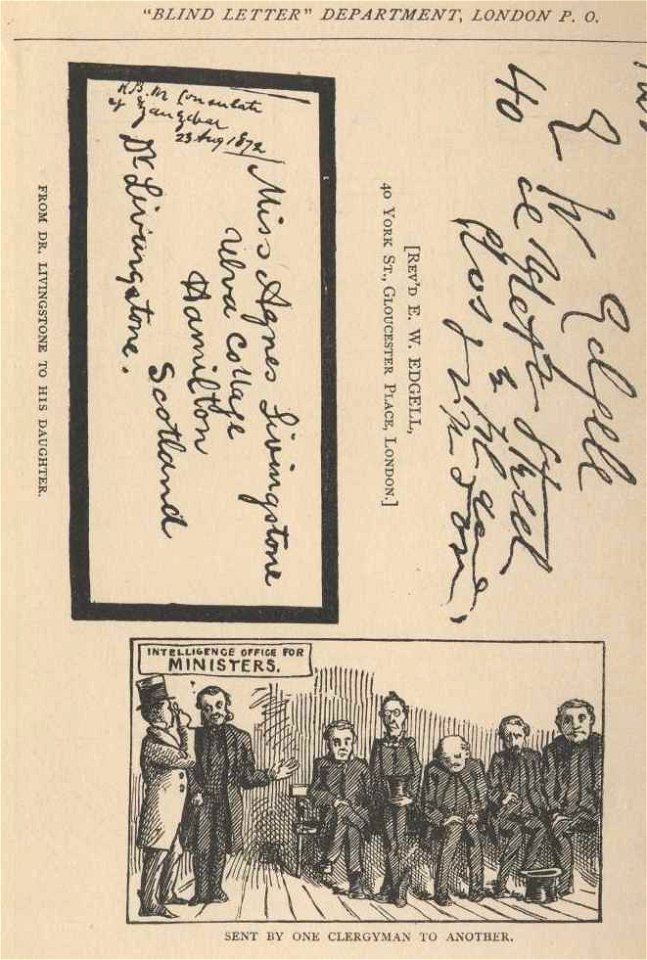 "BLIND LETTER" DEPARTMENT, LONDON P. O.
E W Edgell
40 Street
[REV'D E. W. EDGELL,
40 YORK ST., GLOUCESTER PLACE, LONDON.]
H.B.M Consulate
Zanzibar
23 Aug 1872
Miss Agnes Livingstone
Ulva Cottage
Hamilton
Scotland
Dr Livingstone.
FROM DR. LIVINGSTONE TO HIS DAUGHTER.
INTELLIGENCE OFFICE FOR
MINISTERS.
SENT BY ONE CLERGYMAN TO ANOTHER.